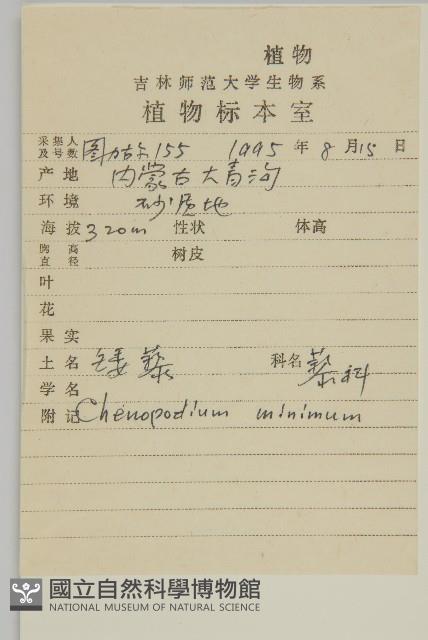 植物
吉林师范大学生物系
植物标本室
采集人及号数 155 1995年8月15日
产地 内蒙古大青沟
环境 砂质地
海拔 320m 性状 体高
胸高直径 树皮
叶
花
果实
土名 矮藜 科名 藜科
学名
附记 Chenopodium minimum
國立自然科學博物館
NATIONAL MUSEUM OF NATURAL SCIENCE